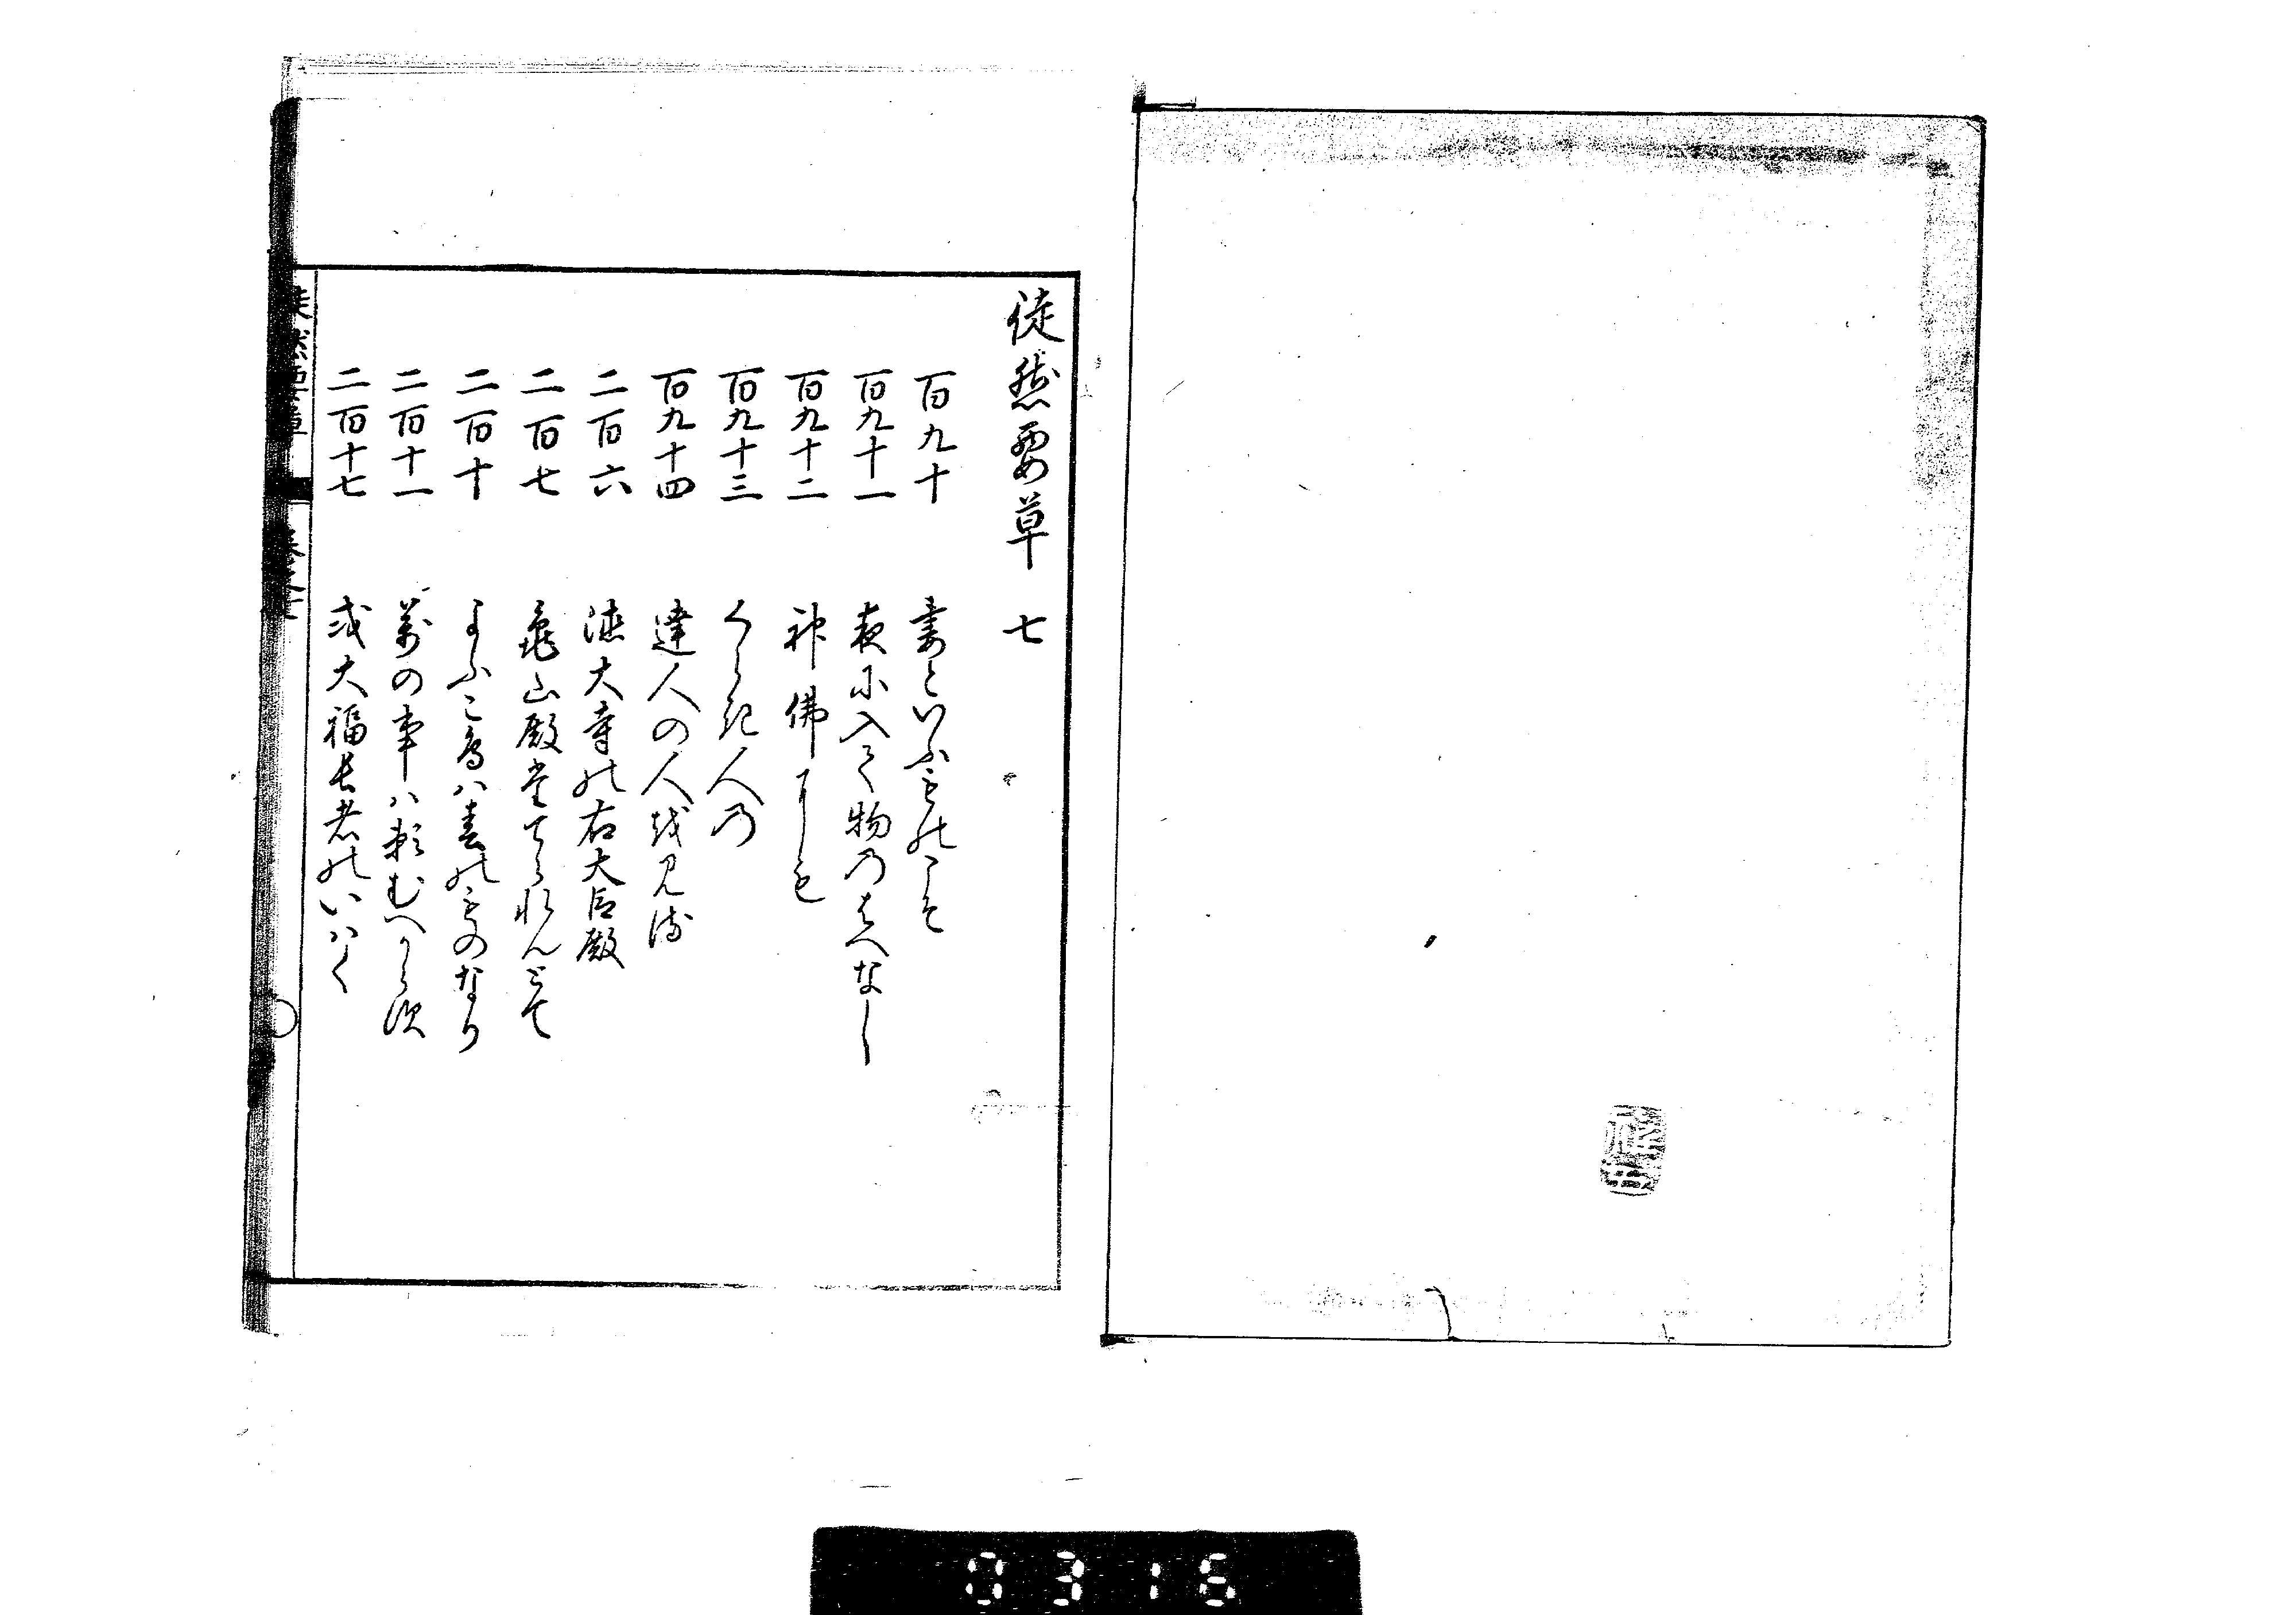 徒然要草 七
百九十 妻といふものこそ
百九十一 夜に入て物のはへなし
百九十二 神佛にも
百九十三 くらき人の
百九十四 達人の人を見る
二百六 徳大寺の右大臣殿
二百七 亀山殿堂てられんとて
二百十 よふこ鳥は春のものなり
二百十一 萬の事は頼むへからす
二百十七 或大福長者のいはく
徒然要草 巻之七
0316